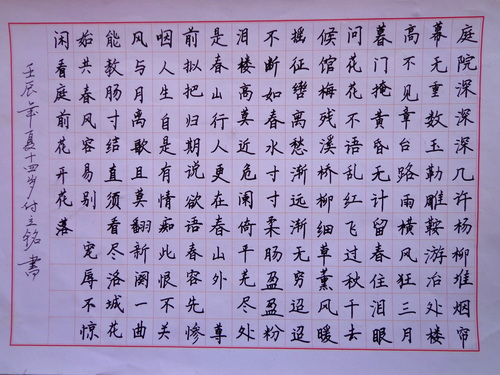 庭院深深深几许杨柳堆烟帘
幕无重数玉勒雕鞍游冶处楼
高不见章台路雨横风狂三月
暮门掩黄昏无计留春住泪眼
问花花不语乱红飞过秋千去
候馆梅残溪桥柳细草薰风暖
摇征辔离愁渐远渐无穷迢迢
不断如春水寸寸柔肠盈盈粉
泪楼高莫近危阑倚平芜尽处
是春山行人更在春山外 尊
前拟把归期说欲语春容先惨
咽人生自是有情痴此恨不关
风与月离歌且莫翻新阕一曲
能教肠寸结直须看尽洛城花
始共春风容易别 宠辱不惊
闲看庭前花开花落
壬辰年夏十四岁付铭书